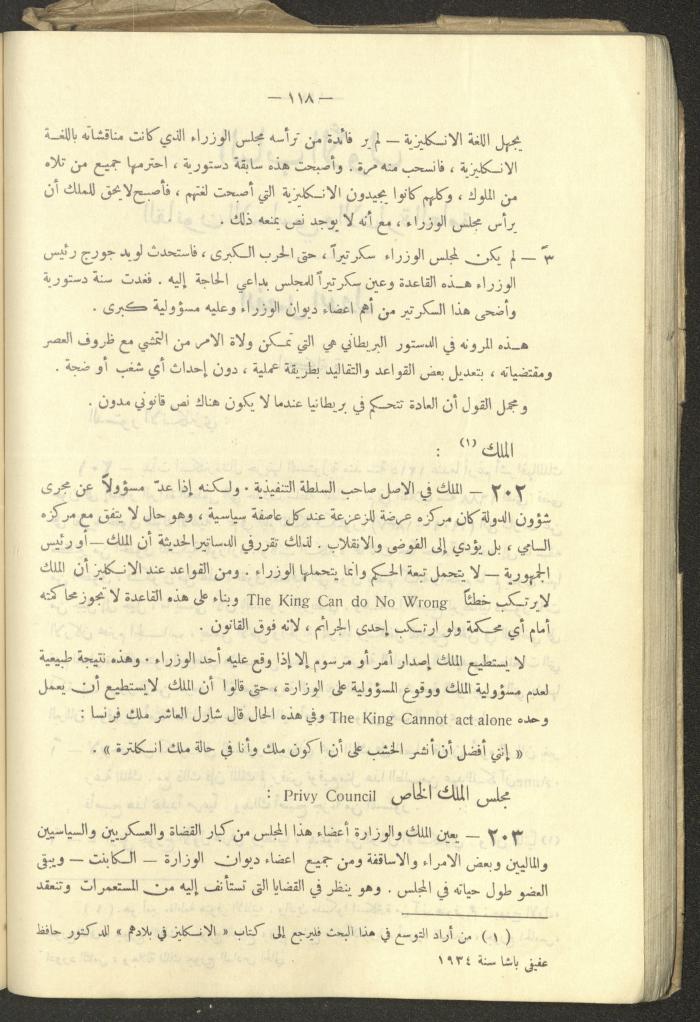 — ١١٨ —
يجهل اللغة الانكليزية — لم ير فائدة من ترأسه مجلس الوزراء الذي كانت مناقشاته باللغة
الانكليزية ، فانسحب منه مرة . وأصبحت هذه سابقة دستورية ، احترمها جميع من تلاه
من الملوك ، وكلهم كانوا يجيدون الانكليزية التي أصبحت لغتهم ، فأصبح لا يحق للملك أن
يرأس مجلس الوزراء ، مع أنه لا يوجد نص يمنعه ذلك .
٣ً — لم يكن لمجلس الوزراء سكرتيراً ، حتى الحرب الكبرى ، فاستحدث لويد جورج رئيس
الوزراء هذه القاعدة وعين سكرتيراً للمجلس بداعي الحاجة إليه . فغدت سنة دستورية
وأضحى هذا السكرتير من أهم اعضاء ديوان الوزراء وعليه مسؤولية كبرى .
هذه المرونه في الدستور البريطاني هي التي تمكن ولاة الامر من التمشي مع ظروف العصر
ومقتضياته ، بتعديل بعض القواعد والتقاليد بطريقة عملية ، دون إحداث أي شغب أو ضجة .
ومجمل القول أن العادة تتحكم في بريطانيا عندما لا يكون هناك نص قانوني مدون .
الملك (١) :
٢٠٢ — الملك في الاصل صاحب السلطة التنفيذية . ولكنه إذا عدّ مسؤولاً عن مجرى
شؤون الدولة كان مركزه عرضة للزعزعة عند كل عاصفة سياسية ، وهو حال لا يتفق مع مركزه
السامي ، بل يؤدي إلى الفوضى والانقلاب . لذلك تقرر في الدساتير الحديثة أن الملك — أو رئيس
الجمهورية — لا يتحمل تبعة الحكم وانما يتحملها الوزراء . ومن القواعد عند الانكليز أن الملك
لا يرتكب خطئاً The King Can do No Wrong وبناء على هذه القاعدة لا تجوز محاكمته
أمام أي محكمة ولو ارتكب إحدى الجرائم ، لانه فوق القانون .
لا يستطيع الملك إصدار أمر أو مرسوم إلا إذا وقع عليه أحد الوزراء . وهذه نتيجة طبيعية
لعدم مسؤولية الملك ووقوع المسؤولية على الوزارة ، حتى قالوا أن الملك لا يستطيع أن يعمل
وحده The King Cannot act alone وفي هذه الحال قال شارل العاشر ملك فرنسا :
« إنني أفضل أن أنشر الخشب على أن اكون ملك وأنا في حالة ملك انكلترة » .
مجلس الملك الخاص Privy Council :
٢٠٣ — يعين الملك والوزارة أعضاء هذا المجلس من كبار القضاة والعسكريين والسياسيين
والماليين وبعض الامراء والاساقفة ومن جميع اعضاء ديوان الوزارة — الكابنت — ويبقى
العضو طول حياته في المجلس . وهو ينظر في القضايا التي تستأنف إليه من المستعمرات وتنعقد
( ١ ) من أراد التوسع في هذا البحث فليرجع إلى كتاب « الانكليز في بلادهم » للدكتور حافظ
عفيفي باشا سنة ١٩٣٤